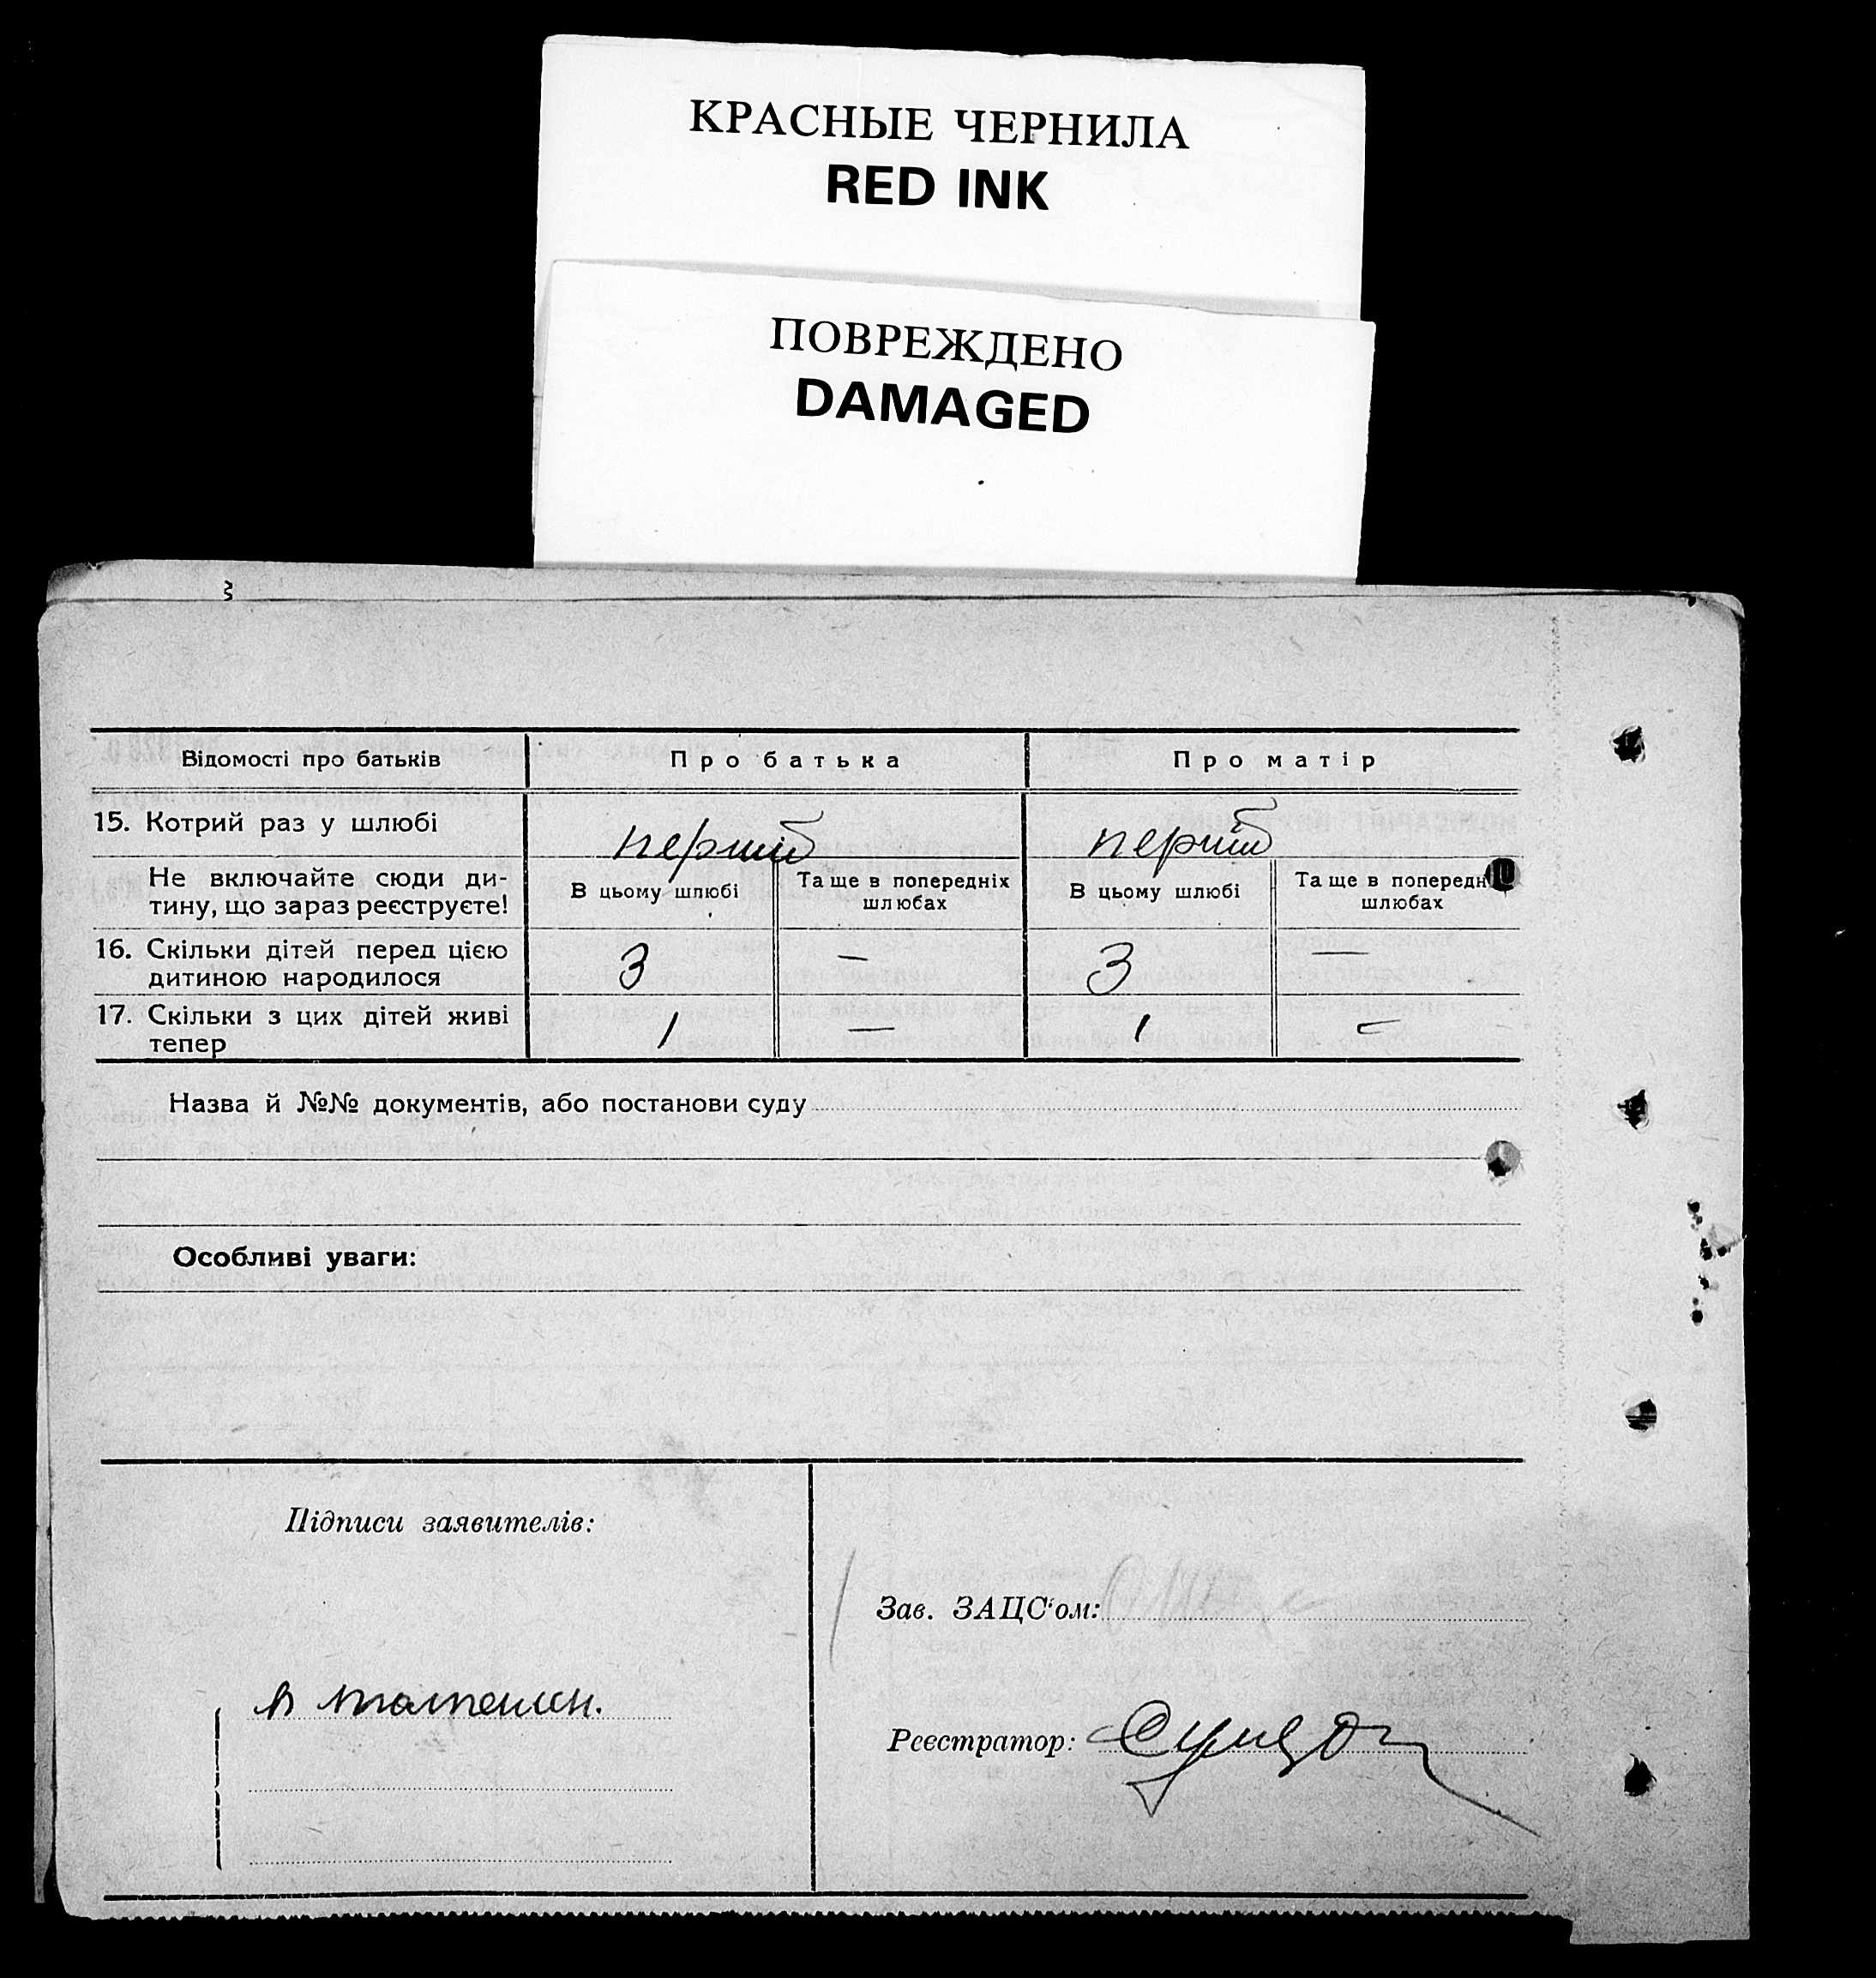 КРАСНЫЕ ЧЕРНИЛА
RED INK
ПОВРЕЖДЕНО
DAMAGED
Відомості про батьків Про батька Про матір
15. Котрий раз у шлюбі перший перший
Не включайте сюди ди-
тину, що зараз реєструєте!
В цьому шлюбі Та ще в попередніх
шлюбах
В цьому шлюбі Та ще в попередн
шлюбах
16. Скільки дітей перед цією
дитиною народилося 3 — 3 —
17. Скільки з цих дітей живі
тепер 1 — 1 —
Назва й №№ документів, або постанови суду
Особливі уваги:
Підписи заявителів:
Зав. ЗАЦС'ом:
Реєстратор: